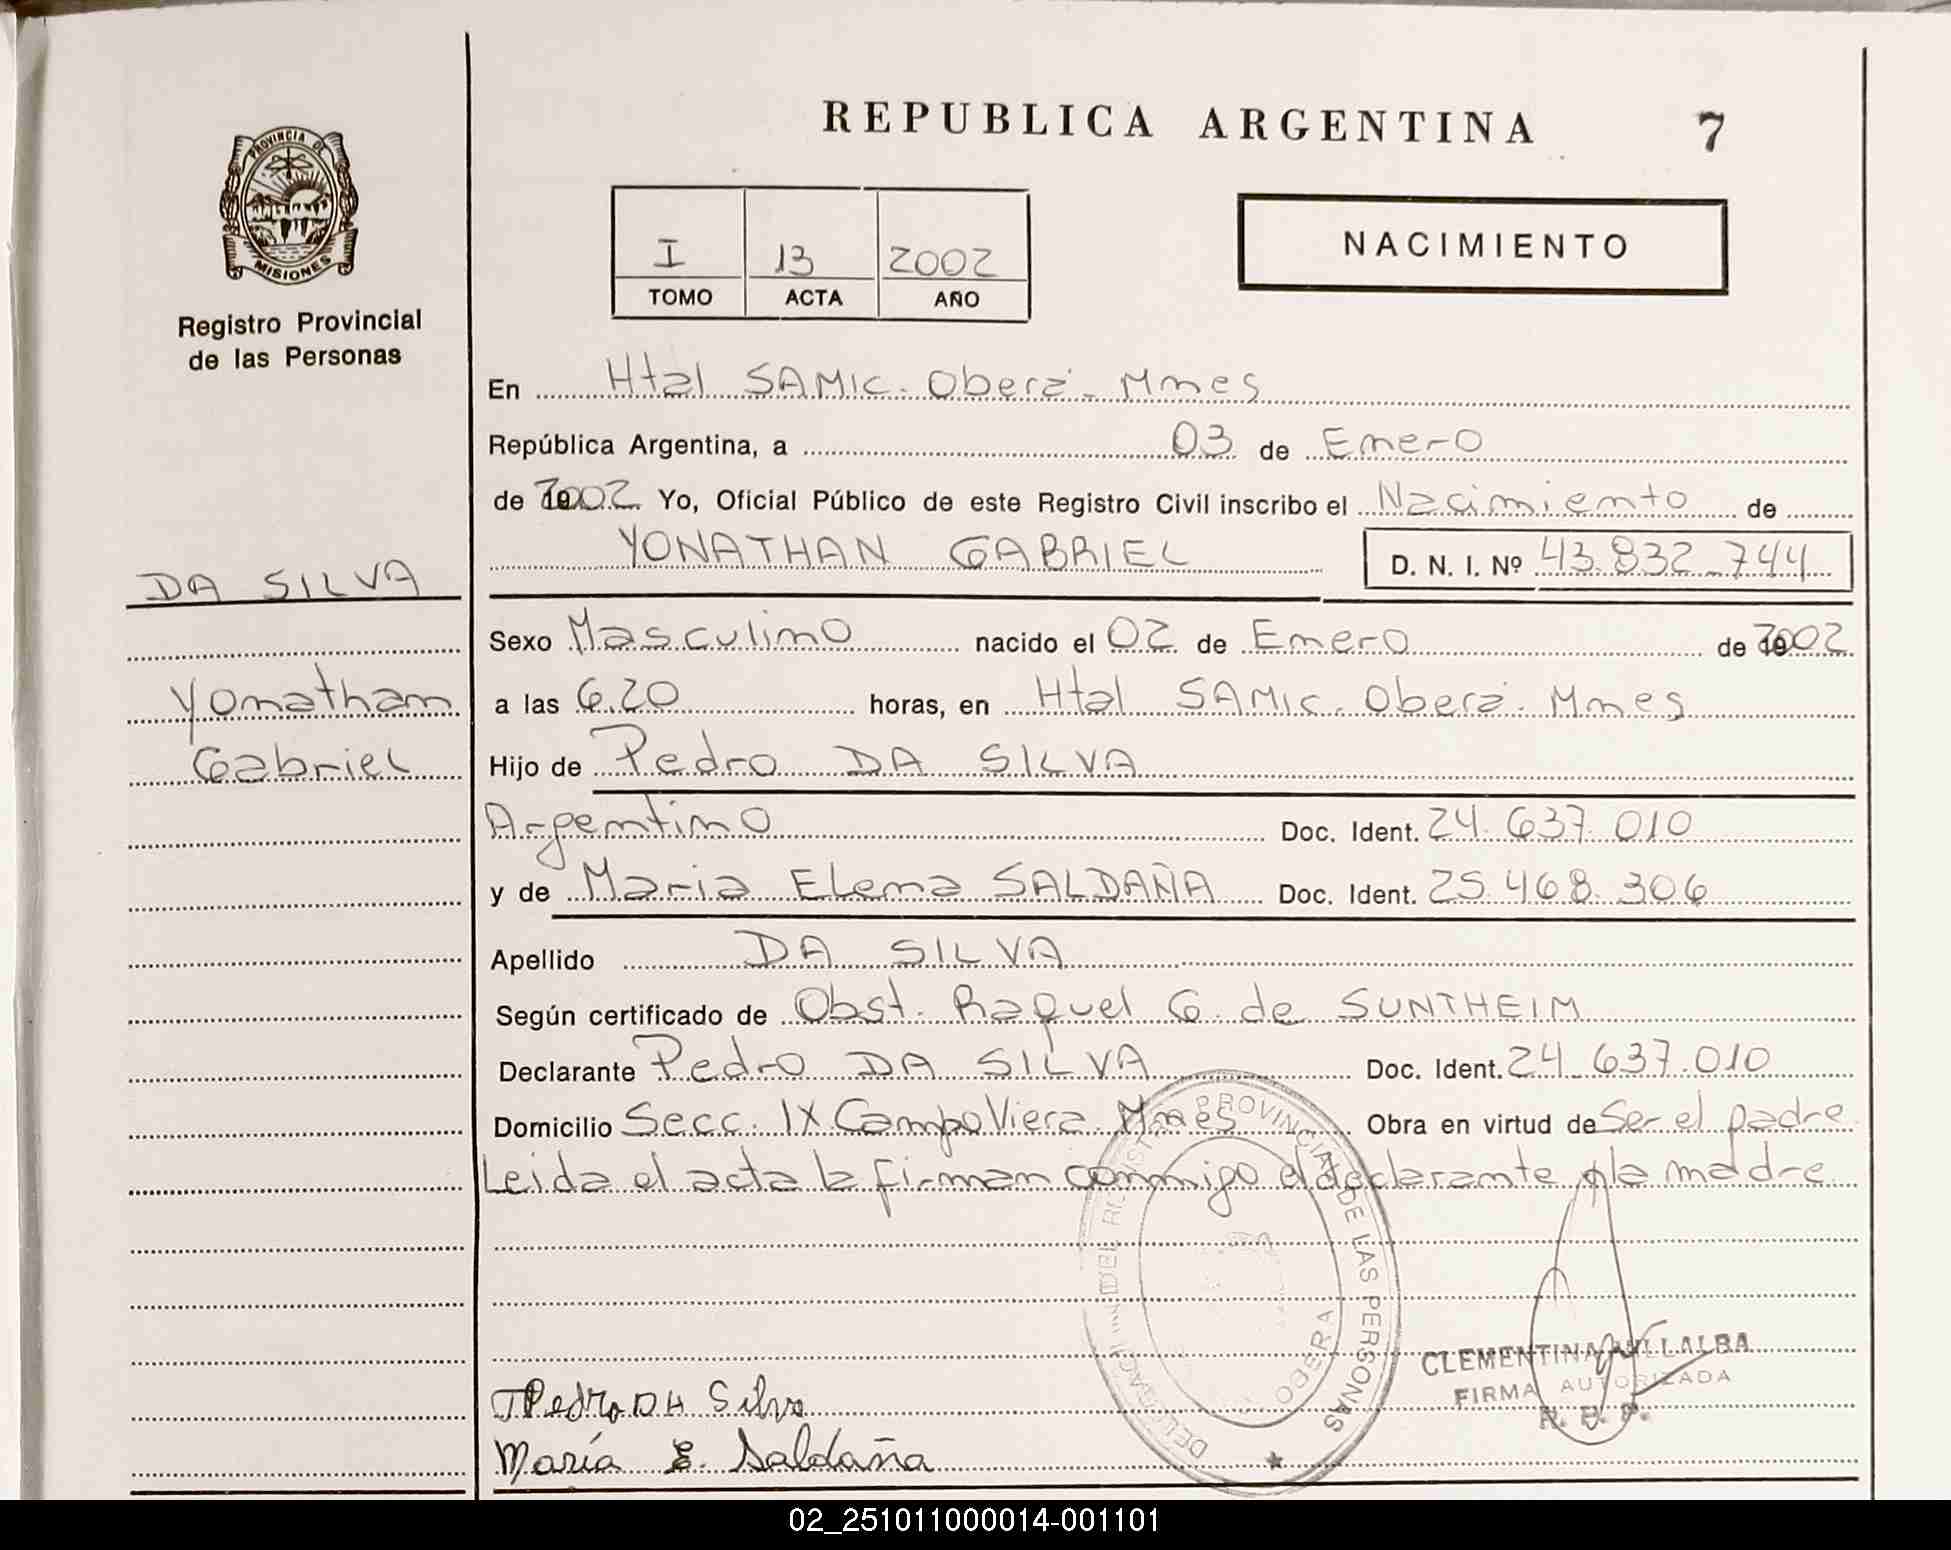 REPUBLICA ARGENTINA 7
PROVINCIA DE
MISIONES
Registro Provincial
de las Personas
I 13 2002
TOMO ACTA AÑO
NACIMIENTO
En Htal SAMIC. Oberá. Mnes
República Argentina, a 03 de Enero
de 2002 Yo, Oficial Público de este Registro Civil inscribo el Nacimiento de
YONATHAN GABRIEL D. N. I. Nº 43.832.744
DA SILVA
Sexo Masculino nacido el 02 de Enero de 2002
Yonathan
a las 6.20 horas, en Htal SAMIC. Oberá. Mnes
Gabriel
Hijo de Pedro DA SILVA
Argentino Doc. Ident. 24.637.010
y de Maria Elena SALDAÑA Doc. Ident. 25.468.306
Apellido DA SILVA
Según certificado de Obst. Raquel G. de SUNTHEIM
Declarante Pedro DA SILVA Doc. Ident. 24.637.010
Domicilio Secc. IX Campo Viera Mnes Obra en virtud de Ser el padre
Leida el acta la firman conmigo el declarante y la madre
DEL REGISTRO PROVINCIAL DE LAS PERSONAS
OBERA
CLEMENTINA VILLALBA
FIRMA AUTORIZADA
R. P. P.
Pedro DA Silva
María E. Saldaña
02_251011000014-001101